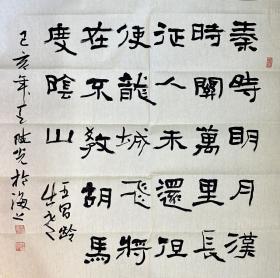 秦時明月漢
時關萬里長
征人未還但
使龍城飛將
在不教胡馬
度陰山
王昌龄
出塞
己亥年 光於海上